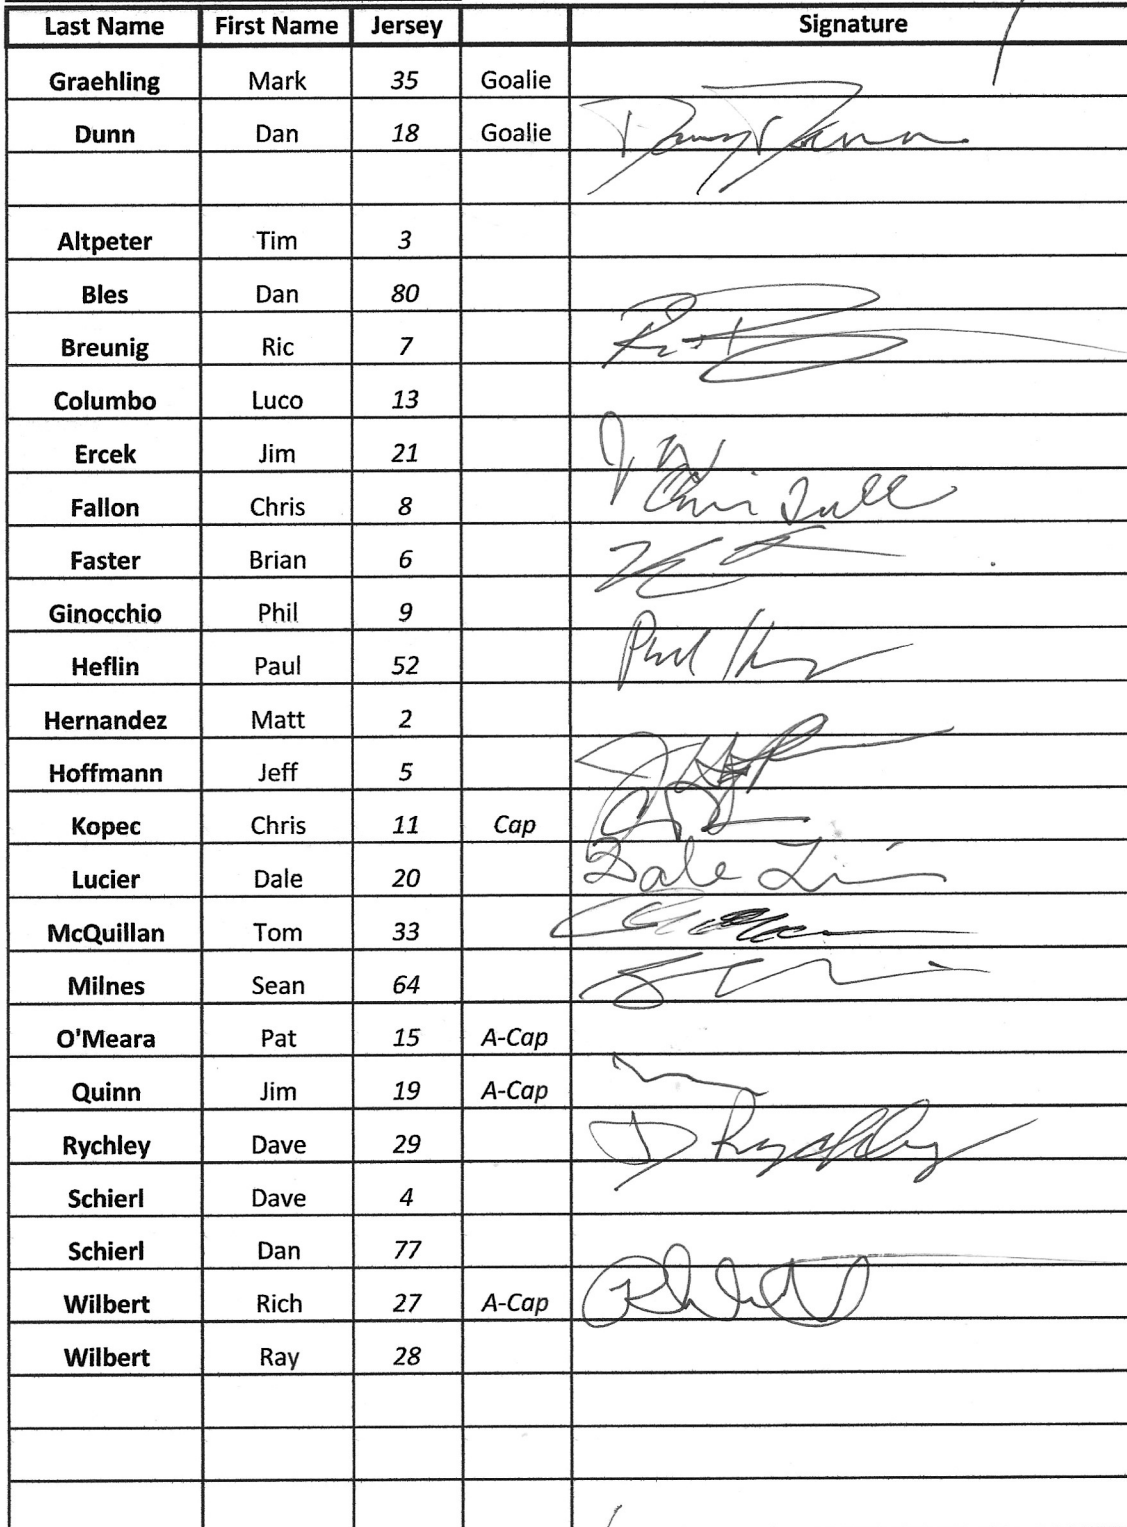 Last Name First Name Jersey Signature
Graehling Mark 35 Goalie
Dunn Dan 18 Goalie Danny Dunn
Altpeter Tim 3
Bles Dan 80
Breunig Ric 7
Columbo Luco 13
Ercek Jim 21
Fallon Chris 8 Chris
Faster Brian 6
Ginocchio Phil 9
Heflin Paul 52 Paul
Hernandez Matt 2
Hoffmann Jeff 5
Kopec Chris 11 Cap
Lucier Dale 20 Dale
McQuillan Tom 33
Milnes Sean 64
O'Meara Pat 15 A-Cap
Quinn Jim 19 A-Cap
Rychley Dave 29 D Rychley
Schierl Dave 4
Schierl Dan 77
Wilbert Rich 27 A-Cap
Wilbert Ray 28